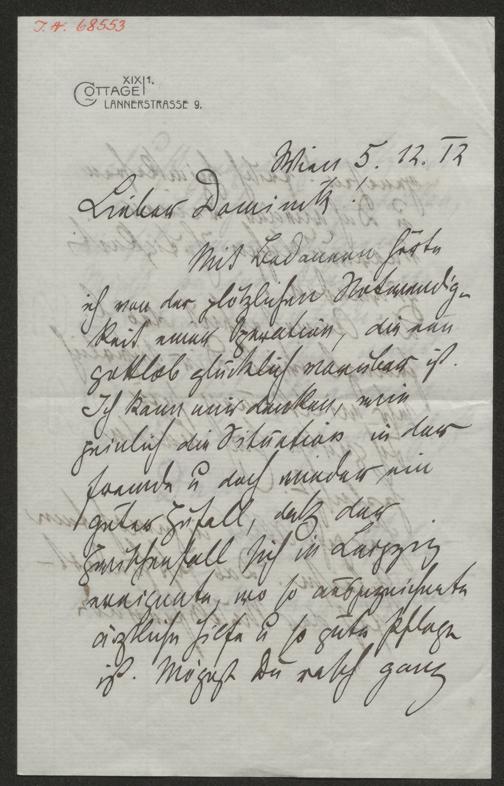 I. N. 68553
XIX|1.
COTTAGE
LANNERSTRASSE 9.
Wien 5. 12. 12
Lieber Dominik!
Mit Bedauern hörte
ich von der plötzlichen Notwendig-
keit einer Operation, die nun
gottlob glücklich vorüber ist.
Ich kann mir denken, wie
peinlich die Situation in der
Fremde u doch wieder ein
guter Zufall, daß der
Zwischenfall sich in Leipzig
ereignete, wo so ausgezeichnete
ärztliche Hilfe u so gute Pflege
ist. Mögest Du rasch ganz